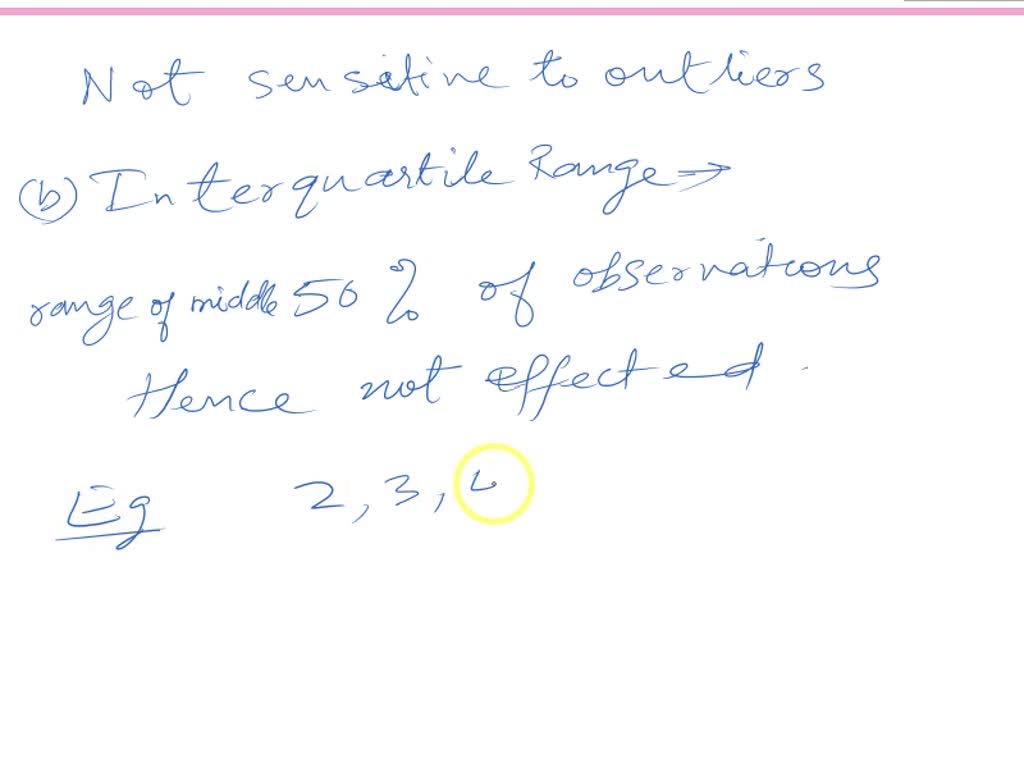 Not sensitive to outliers
(b) Interquartile Range →
range of middle 50 % of observations
Hence not effected.
Eg 2, 3,